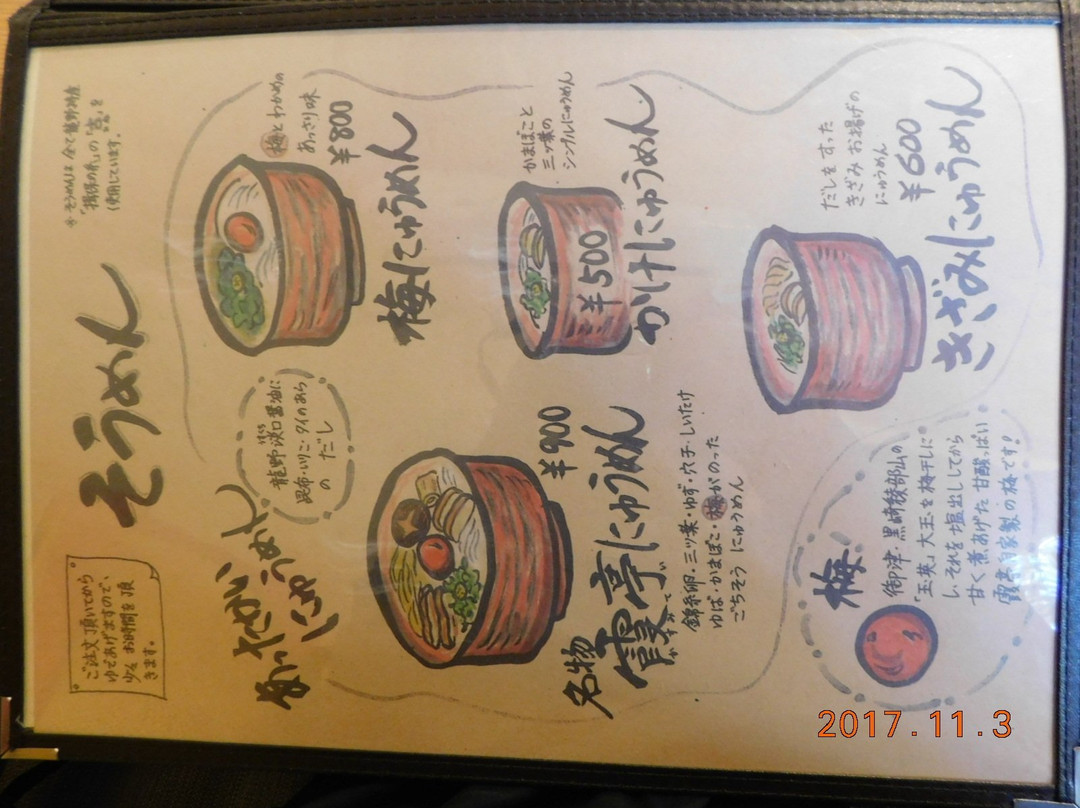 そうめん
ご注文頂いてから
ゆであげますので、
少々お時間を頂
きます。
※そうめんは全て龍野特産
"揖保の糸"の
使用しています。
あったかい
にゅうめん
龍野淡口醤油に
昆布・いりこ・タイのあら
の だし
梅とわかめの
あっさり味
¥800
梅にゅうめん
かまぼこと
三ッ葉の
シンプルにゅうめん
¥500
かけにゅうめん
だしをすった
きざみお揚げの
にゅうめん
¥600
きざみにゅうめん
¥900
名物
霞亭にゅうめん
かすみてい
錦糸卵・三ッ葉・ゆず・穴子・しいたけ
ゆば・かまぼこ・梅がのった
ごちそうにゅうめん
梅
御津・黒崎綾部山の
「玉英」大玉を梅干しに
し、それを塩出ししてから
甘く煮あげた甘酸っぱい
霞亭自家製の梅です!
2017.11.3